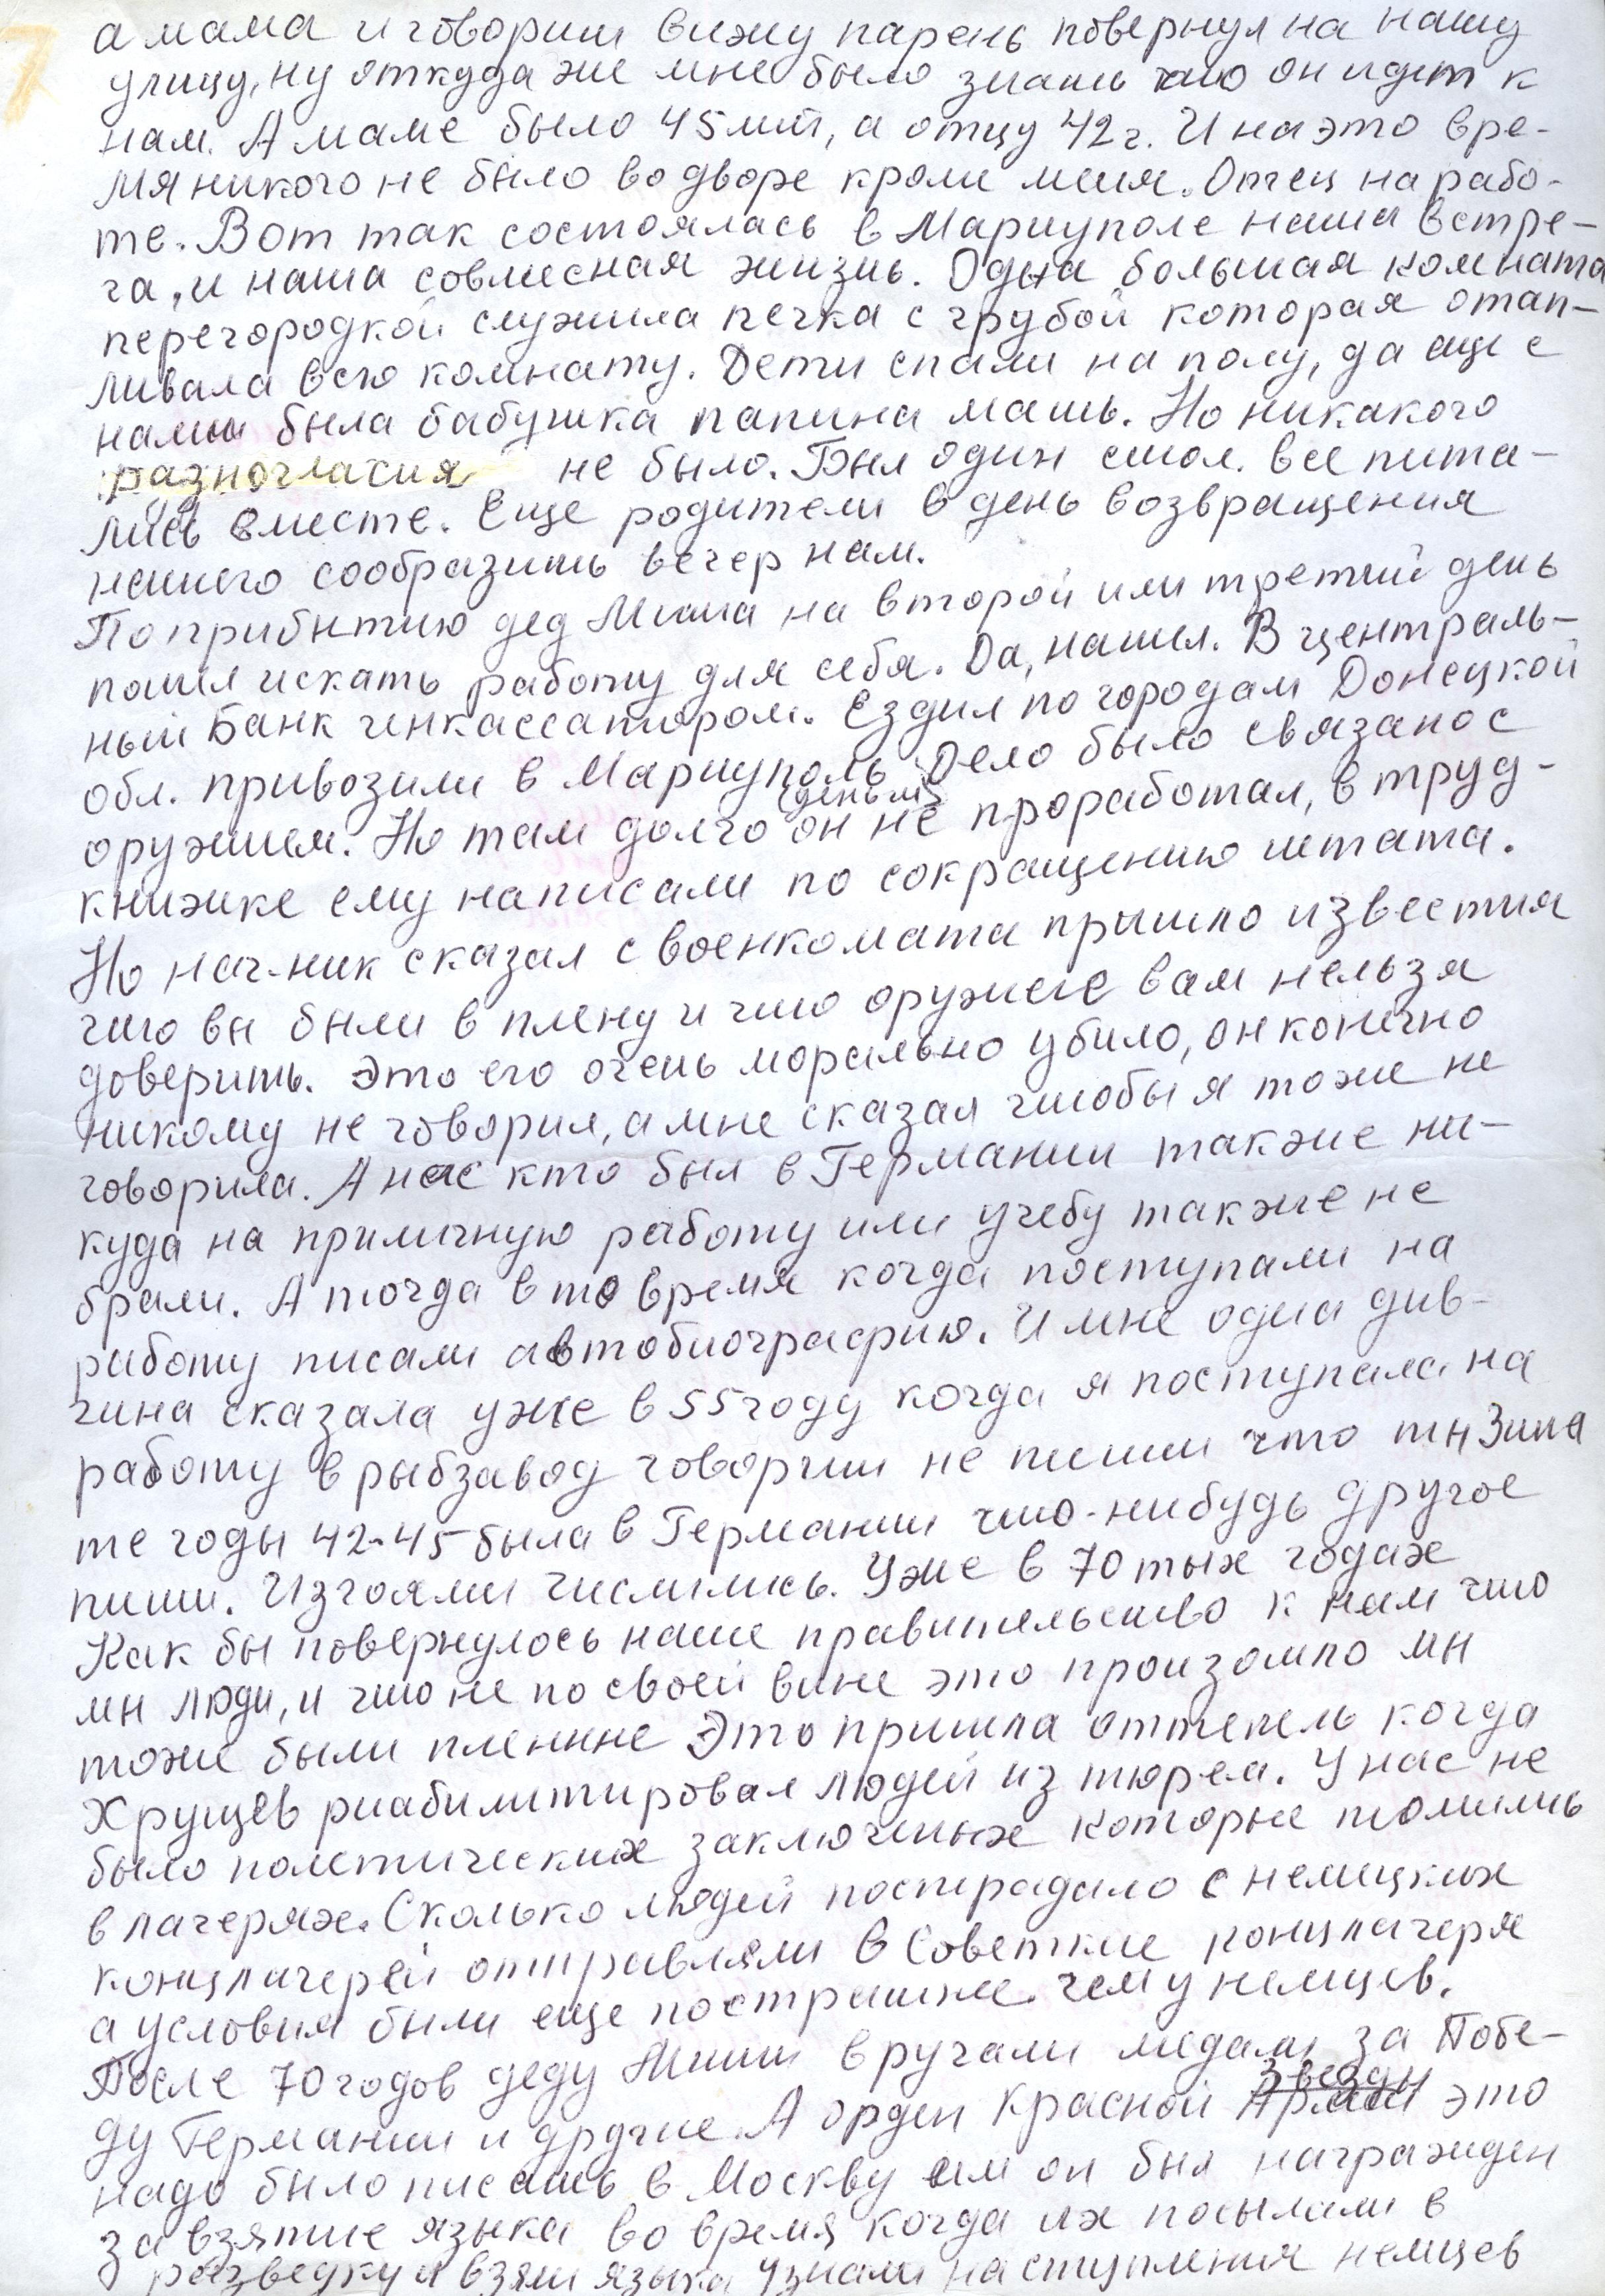 7
а мама и говорит вижу парень повернул на нашу
улицу, ну откуда же мне было знать что он идет к
нам. А маме было 45 лет, а отцу 42 г. И на это вре-
мя никого не было во дворе кроме меня. Отец на рабо-
те. Вот так состоялась в Мариуполе наша встре-
ча, и наша совмесная жизнь. Одна большая комната
перегородкой служила печка с грубой которая отап-
ливала всю комнату. Дети спали на полу, да еще с
нами была бабушка папина мать. Но никакого
разногласия не было. Был один стол. все пита-
лись вместе. Еще родители в день возвращения
нашего сообразить вечер нам.
По прибытию дед Миша на второй или третий день
пошел искать работу для себя. Да, нашел. В централь-
ный Банк инкассатором. Ездил по городам Донецкой
обл. привозили в Мариуполь (деньги) Дело было связано с
оружием. Но там долго он не проработал, в труд-
книжке ему написали по сокращению штата.
Но нач-ник сказал с военкомата прышло известия
что вы были в плену и что оружие вам нельзя
доверить. Это его очень морально убило, он конечно
никому не говорил, а мне сказал чтобы я тоже не
говорила. А нас кто был в Германии также ни-
куда на приличную работу или учебу также не
брали. А тогда в то время когда поступали на
работу писали автобиографию. И мне одна див-
чина сказала уже в 55 году когда я поступала на
работу в рыбзавод говорит не пиши что ты Зина
те годы 42-45 была в Германии что-нибудь другое
пиши. Изгоями числились. Уже в 70тых годах
Как бы повернулось наше правительство к нам что
мы люди, и что не по своей вине это произошло мы
тоже были пленные Это пришла оттепель когда
Хрущев риабилитировал людей из тюрем. У нас не
было политических заключеных которые томились
в лагерях. Сколько людей пострадало с немецких
концлагерей отправляли в Советкие концлагеря
а условия были еще пострашнее чем у немцев.
После 70 годов деду Миши вручали медали за Побе-
ду Германии и другие. А Орден Красной Армии Звезды это
надо было писать в Москву им он был награжден
за взятие языка во время когда их посылали в
разведку и взяли языка узнали наступления немцев